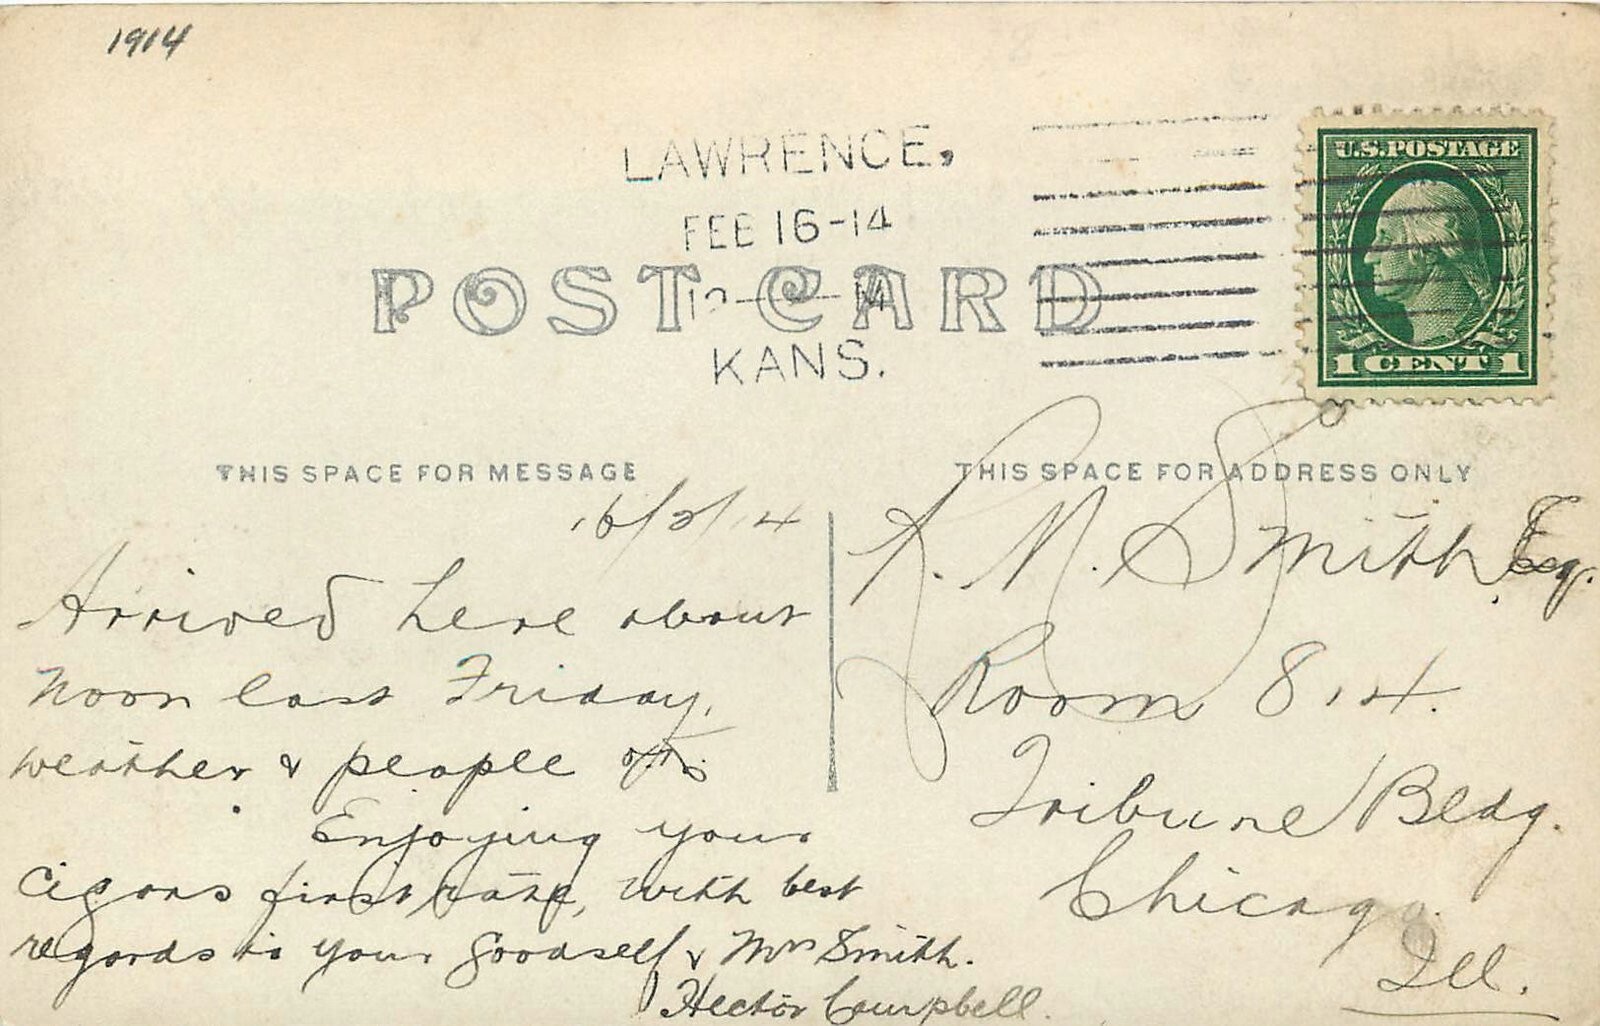 1914
LAWRENCE,
FEB 16-14
12 — M
KANS.
U.S. POSTAGE
1 CENT 1
POST CARD
THIS SPACE FOR MESSAGE
THIS SPACE FOR ADDRESS ONLY
16/2/14
Arrived here about
noon last Friday,
weather & people
Enjoying your
cigars first rate, with best
regards to your goodself & Mrs Smith.
Hector Campbell.
R. N. Smith, Esq.
Room 814.
Tribune Bldg.
Chicago.
Ill.